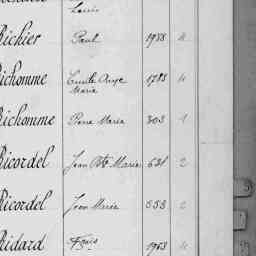 Louis
Richier Paul 1988 4
Richomme Emile Ange 1783 4
Marie
Richomme Pierre Marie 303 1
Ricordel Jean Bte Marie 631 2
Ricordel Jean Marie 553 2
Ridard Fçois 1963 4